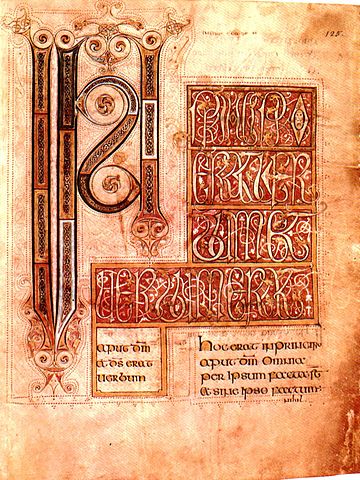 125.
INP
RINCIPIO
ERAT VER
BUM ET
VERBUM ERAT
apud dm̄
et ds̄ erat
uerbum
hoc erat in principio
apud dm̄ omnia
per ipsum facta st̄
et sine ipso factum
nihil